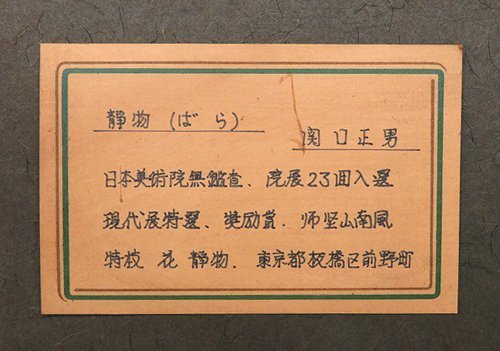 静物 (ばら)
関口正男
日本美術院無鑑査、院展23回入選
現代展特選、奨励賞、师堅山南風
特枝 花 静物、東京都板橋区前野町